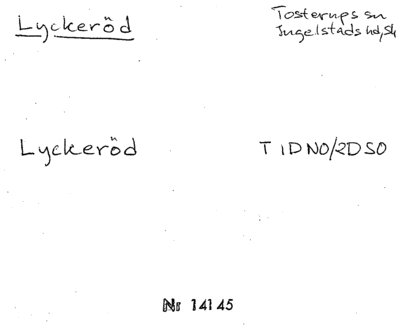 Lyckeröd
Tosterups sn
Ingelstads hd, Sk
Lyckeröd
T 1D NO/2D SO
Nr 14145